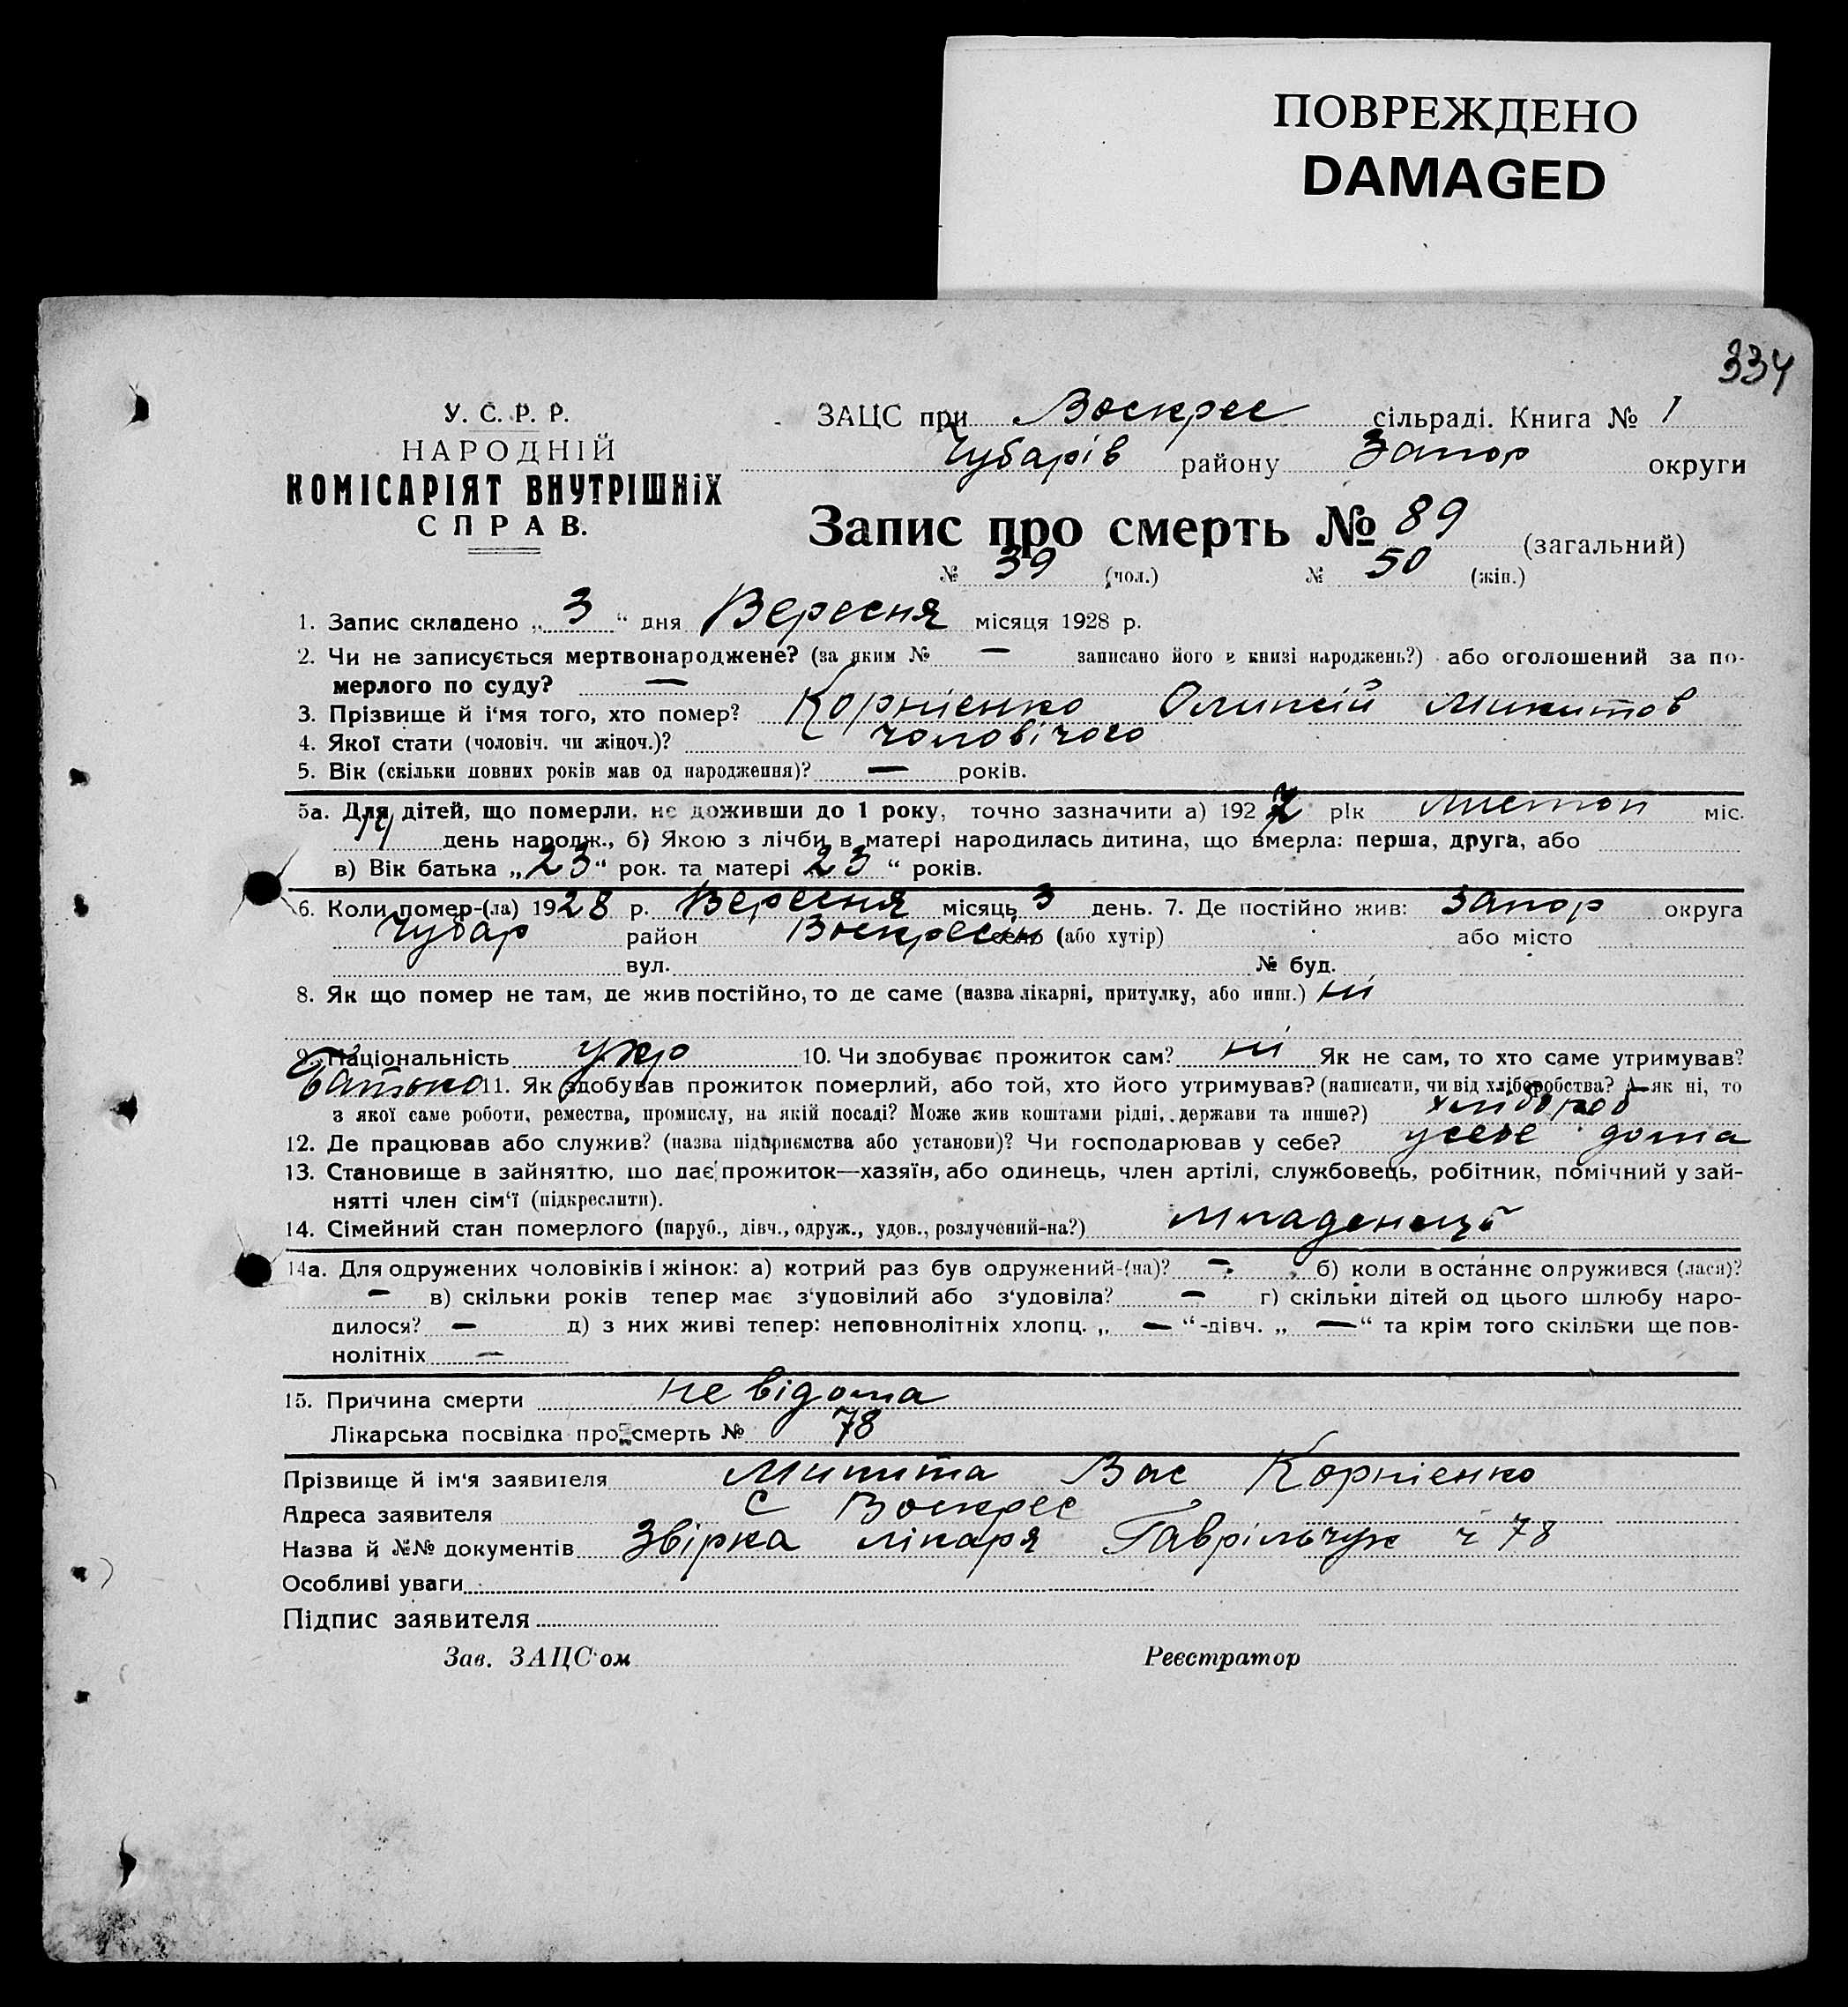 ПОВРЕЖДЕНО
DAMAGED
334
У. С. Р. Р.
НАРОДНІЙ
КОМІСАРІЯТ ВНУТРІШНІХ
СПРАВ.
ЗАЦС при Воскрес сільраді. Книга № 1
Чубарів району Запор округи
Запис про смерть № 89 (загальний)
№ 39 (чол.) № 50 (жін.)
1. Запис складено „ 3 “ дня Вересня місяця 1928 р.
2. Чи не записується мертвонароджене? (за яким № — записано його в книзі народжень?) або оголошений за по-
мерлого по суду? —
3. Прізвище й і'мя того, хто помер? Корнієнко Олипсій Микитов
4. Якої стати (чоловіч. чи жіноч.)? чоловічого
5. Вік (скільки повних років мав од народження)? — років.
5а. Для дітей, що померли, не доживши до 1 року, точно зазначити а) 1927 рік листоп міс.
14 день народж., б) Якою з лічби в матері народилась дитина, що вмерла: перша, друга, або
в) Вік батька „ 23 “ рок. та матері 23 “ років.
6. Коли помер-(ла) 1928 р. Вересня місяць 3 день. 7. Де постійно жив: Запор округа
Чубар район Воскресін село (або хутір) або місто
вул. № буд.
8. Як що помер не там, де жив постійно, то де саме (назва лікарні, притулку, або инш.) ні
9. Національність укр 10. Чи здобуває прожиток сам? ні Як не сам, то хто саме утримував?
батько 11. Як здобував прожиток померлий, або той, хто його утримував? (написати, чи від хліборобства? А як ні, то
з якої саме роботи, ремества, промислу, на якій посаді? Може жив коштами рідні, держави та инше?) хлібороб
12. Де працював або служив? (назва підприємства або установи)? Чи господарював у себе? усебе дома
13. Становище в зайняттю, що дає прожиток—хазяїн, або одинець, член артілі, службовець, робітник, помічний у зай-
нятті член сім'ї (підкреслити).
14. Сімейний стан померлого (паруб., дівч., одруж., удов., розлучений-на?) младенець
14а. Для одружених чоловіків і жінок: а) котрий раз був одружений-(на)? — б) коли в останнє одружився (лася)?
— в) скільки років тепер має з'удовілий або з'удовіла? — г) скільки дітей од цього шлюбу наро-
дилося? — д) з них живі тепер: неповнолітніх хлопц. „ — “-дівч. „ — “ та крім того скільки ще пов-
нолітніх —
15. Причина смерти не відома
Лікарська посвідка про смерть № 78
Прізвище й ім'я заявителя Микита Вас Корнієнко
Адреса заявителя с Воскрес
Назва й №№ документів Звірка лікаря Гаврільчук ч 78
Особливі уваги
Підпис заявителя
Зав. ЗАЦС'ом Реєстратор